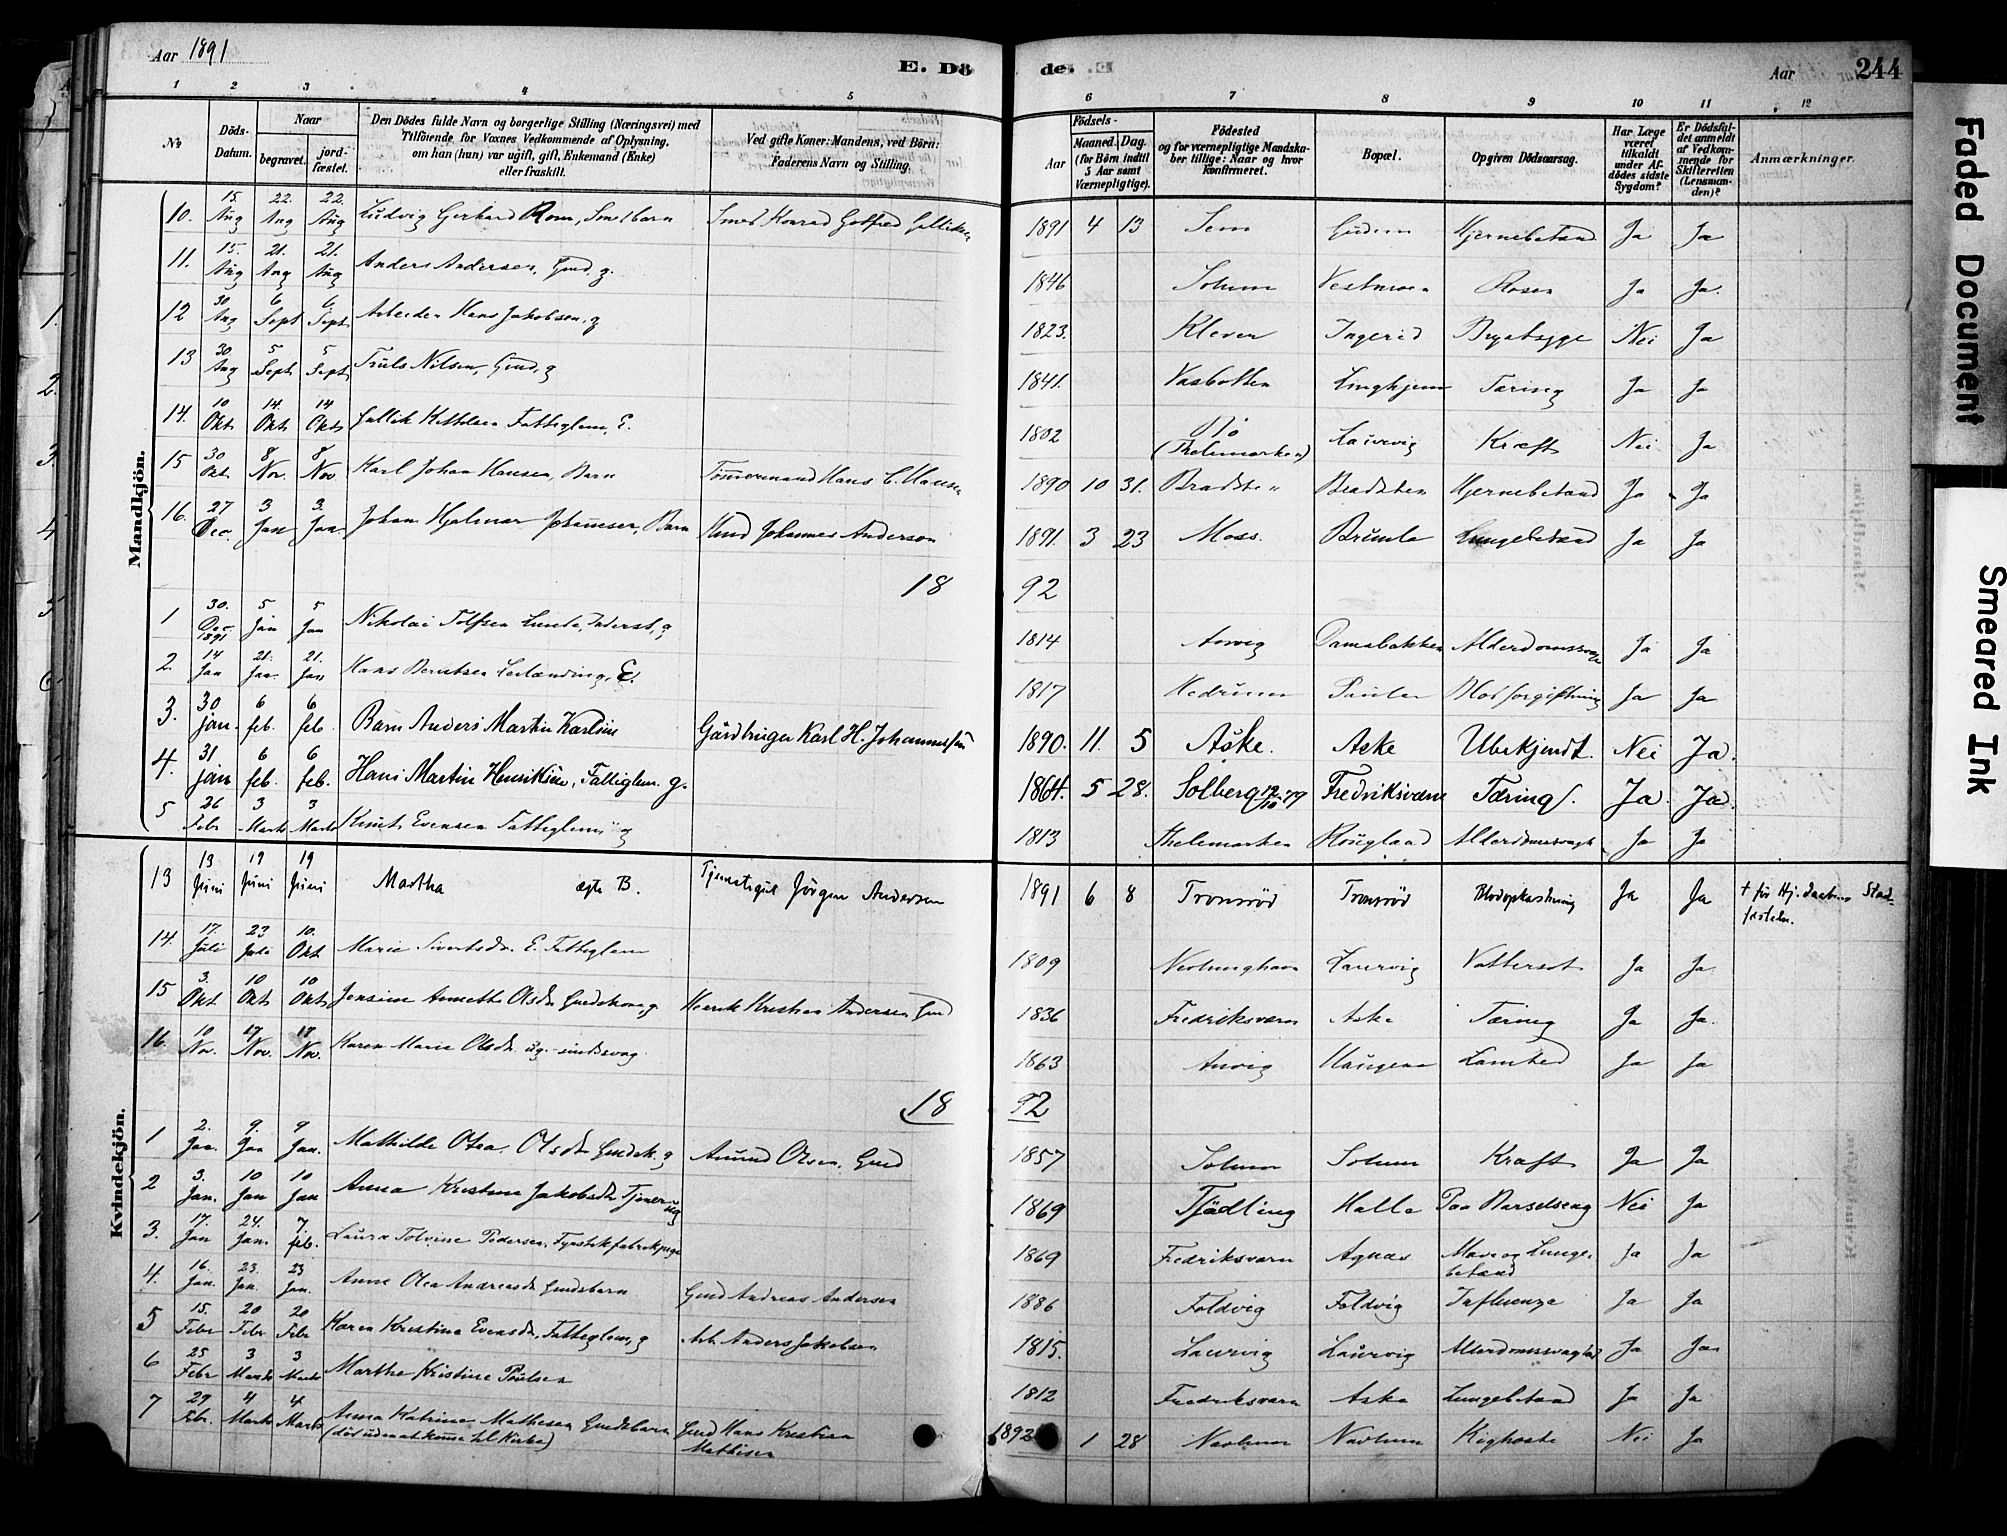 Aar 1891
E. Dö
de.
Aar
244
1 2 3 4 5 6 7 8 9 10 11 12
No
Döds-Datum.
Naar
begravet.
jord-fæstet.
Den Dödes fulde Navn og borgerlige Stilling (Næringsvei) med
Tilföiende for Voxnes Vedkommende af Oplysning.
om han (hun) var ugift, gift, Enkemand (Enke)
eller fraskilt.
Ved gifte Koner: Mandens, ved Börn:
Faderens Navn og Stilling.
Födsels-
Aar
Maaned. Dag.
(for Börn indtil
5 Aar samt
Værnepligtige).
Födested
og for værnepligtige Mandska-
ber tillige: Naar og hvor
konfirmeret.
Bopæl.
Opgiven Dödsaarsag.
Har Læge
været
tilkaldt
under Af-
dödes sidste
Sygdom?
Er Dödsfal-
det anmeldt
af Vedkom-
mende for
Skifteretten
(Lensman-
den)?
Anmærkninger.
Mandkjön.
10. 15. Aug 22. Aug 22. Aug Ludvig Gerhard Rom, Smedbarn Smed Konrad Gotfred 1891 4 13 Sem Hjernebetænd Ja Ja
11. 15. Aug 21. Aug 21. Aug Anders Andersen, Gmd. g. 1846 Solum Vestmoen Rosen Ja Ja.
12 30 Aug 6 Sept 6 Sept Arbeider Hans Jakobsen, g 1823. Kleven Ingerid Brystsyge Nei Ja
13 30 Aug 5 Sept 5 Sept Truls Nilsen, Gmd, g 1841. Vasbotten Tæring Ja Ja
14. 10 Okt 14. Okt 14 Okt Gullik Kittelsen Fattiglem, E. 1802 Bø (Thelemarken) Laurvig Kræft Nei Ja
15 30 Okt. 8 Nov. 8 Nov Karl Johan Hansen, Barn Tømmermand Hans C. Hansen 1890 10 31. Bradsten Bradsten Hjernebetænd Ja Ja
16. 27 Dec. 3 Jan 3. Jan. Johan Hjalmar Johannesen, Barn Gmd Johannes Anderson 1891. 3 23 Moss. Brumla Lungebetænd Ja Ja
18 92
1 30. Dec. 1891 5 Jan 5 Jan Nikolai Tolfsen Lunde, Inderst, g 1814 Anvig Damsbakken Alderdomssvagh Ja Ja
2. 14 Jan 21. Jan. 21. Jan Hans Berntsen E. 1817 Hedrum Blodforgiftning Ja Ja
3. 30 jan. 6 feb. 6 feb Barn Anders Martin Karlsen Gårdbruger Karl H. Johannessen 1890. 11. 5 Aske. Aske Ubekjendt. Nei Ja.
4. 31 jan 6 feb. 6 feb. Hans Martin Henriksen, Fattiglem. g. 1864. 5 28. Solberg 12/10 79 Fredriksværn Tæring. Ja. Ja.
5 26 Febr 3 Marts 3 Marts Knut Evensen Fattiglem, g 1813 Thelemarken Alderdomssvagh Ja Ja
Kvindekjön.
13 13 Juni 19 Juni 19 Juni Martha ægte B. Tjenstegut Jörgen Andersen 1891 6 8 Tronsrød Tronsrød Blodopkastning Ja Ja † før Hj. daabens Stad-
festelse.
14. 17. Juli 23 Juli 10. Okt Marie Sivertsdr. E. Fattiglem 1809 Nevlunghavn Laurvig Vattersot Ja Ja
15 3. Okt 10 Okt 10 Okt Jensine Annette Olsdr Gmdskone, g Henrik Kristian Andersen Gmd 1836 Fredriksværn Aske Tæring Ja Ja.
16. 10 Nov. 17 Nov. 17 Nov. Karen Marie Olsdr. ug. sindssvag. 1863 Anvig Haugene Lamhed Ja Ja
18 92
1 2. Jan. 9. Jan 9 Jan. Mathilde Olea Olsdr Gmdsk. g Amund Olsen, Gmd 1857 Solum Solum Kræft Ja Ja
2 3. Jan. 10 Jan 10 Jan Anna Kristine Jakobsdr Tjener ug 1869 Tjødling Halle Paa Barselseng Nei Ja
3. 17. Jan 24. Jan. 7. feb. Laura Tolvine Pedersen, Fyrstikfabrikpige 1869 Fredriksværn Agnæs Mave og Lunge-
betænd Ja Ja
4. 16. Jan. 23. Jan. 23 Jan. Anne Olea Andreasdr Gmdsbarn Gmd Andreas Andersen 1886 Foldvig Foldvig Influenza Ja Ja
5 15. Febr 20 Febr 20 Febr Karen Kristine Evensdr, Fattiglem, g Arb. Anders Jakobsen 1815. Laurvig Laurvig Alderdomssvaghed Ja Ja
6 25 Febr 3 Marts 3 Marts Marthe Kristine Poulsen 1812 Fredriksværn Aske Lungebetænd Ja Ja
7 29 Febr. 4 Marts 4 Marts Anna Katrine Mathisen Gmdsbarn Gmd Hans Kristian
(döt uden at komme til Kirke) Mathisen 1892 1 28 Navlum Navlum Kighoste Nei Ja
Faded Document
Smeared Ink